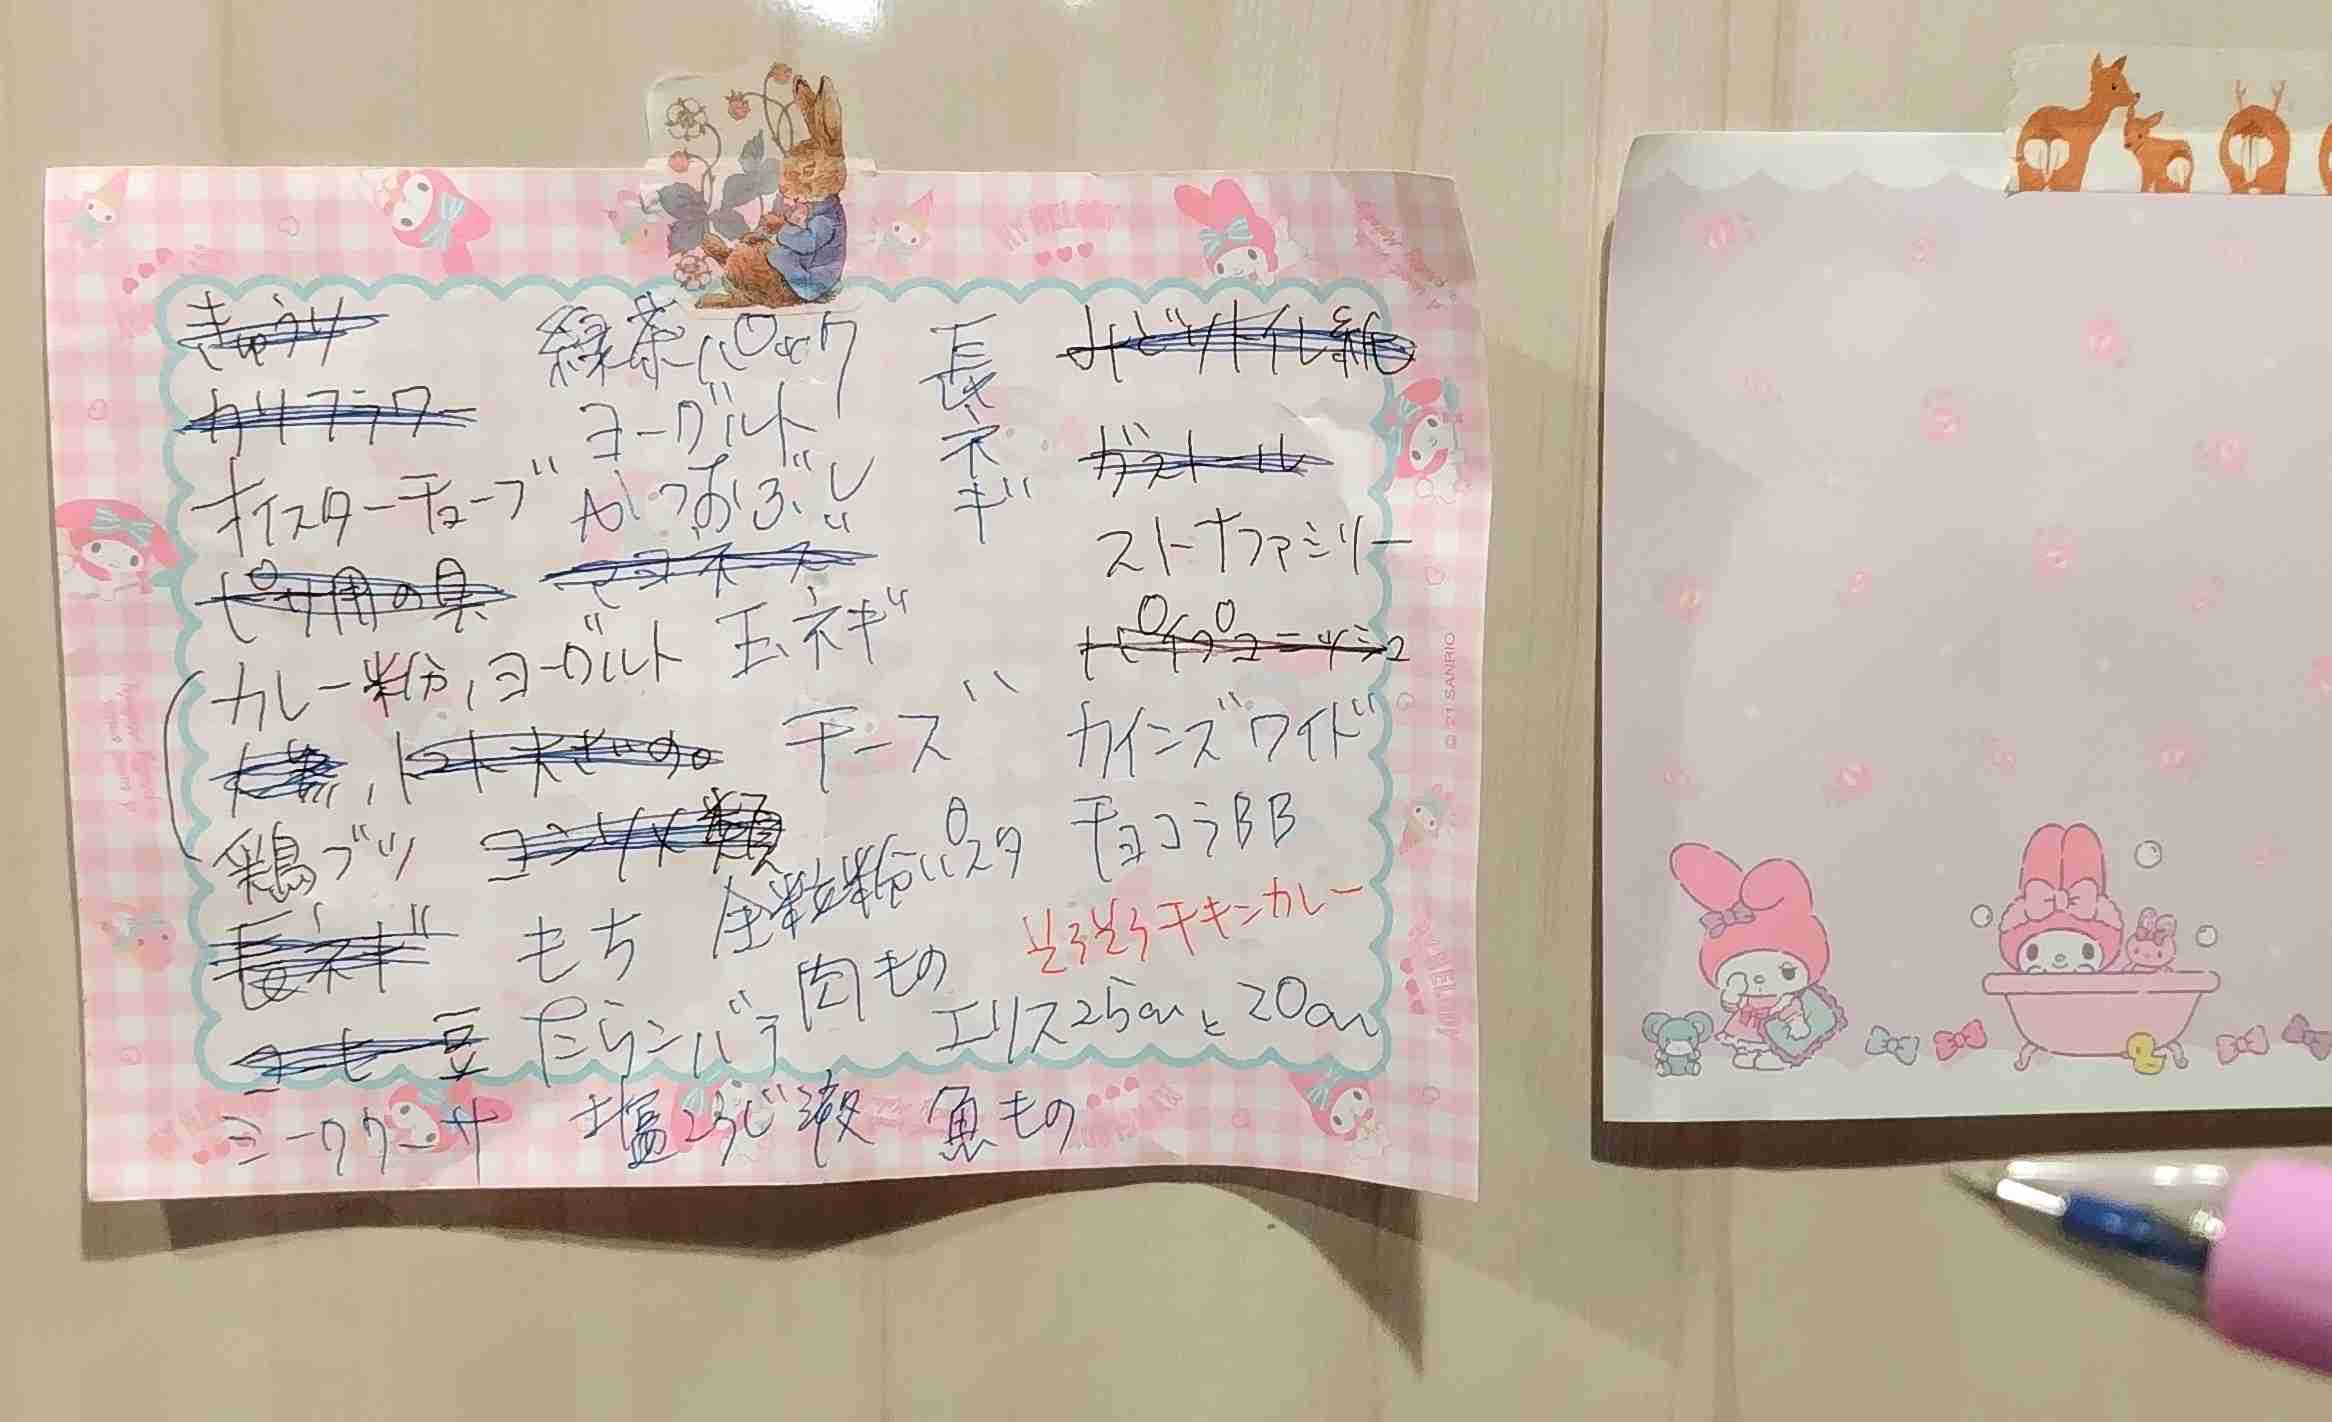 きゅうり
カリフラワー
オイスターチューブ
ピザ用の具
カレー粉、ヨーグルト
トマト水煮の。
鶏ブツ コンソメ類
長ネギ
コーヒー豆
ミークワーサ
緑茶パック
ヨーグルト
かつおぶし
マヨネーズ
玉ネギ
チーズ
全粒粉パスタ
もち
肉もの
たらンバラ
塩こうじ液
魚もの
長ネギ
みどりトイレ紙
ガストール
ストナファミリー
パイプユーッシュ
カインズワイド
チョコラBB
そろそろチキンカレー
エリス25cmと20cm
MY MELODY
© '21 SANRIO